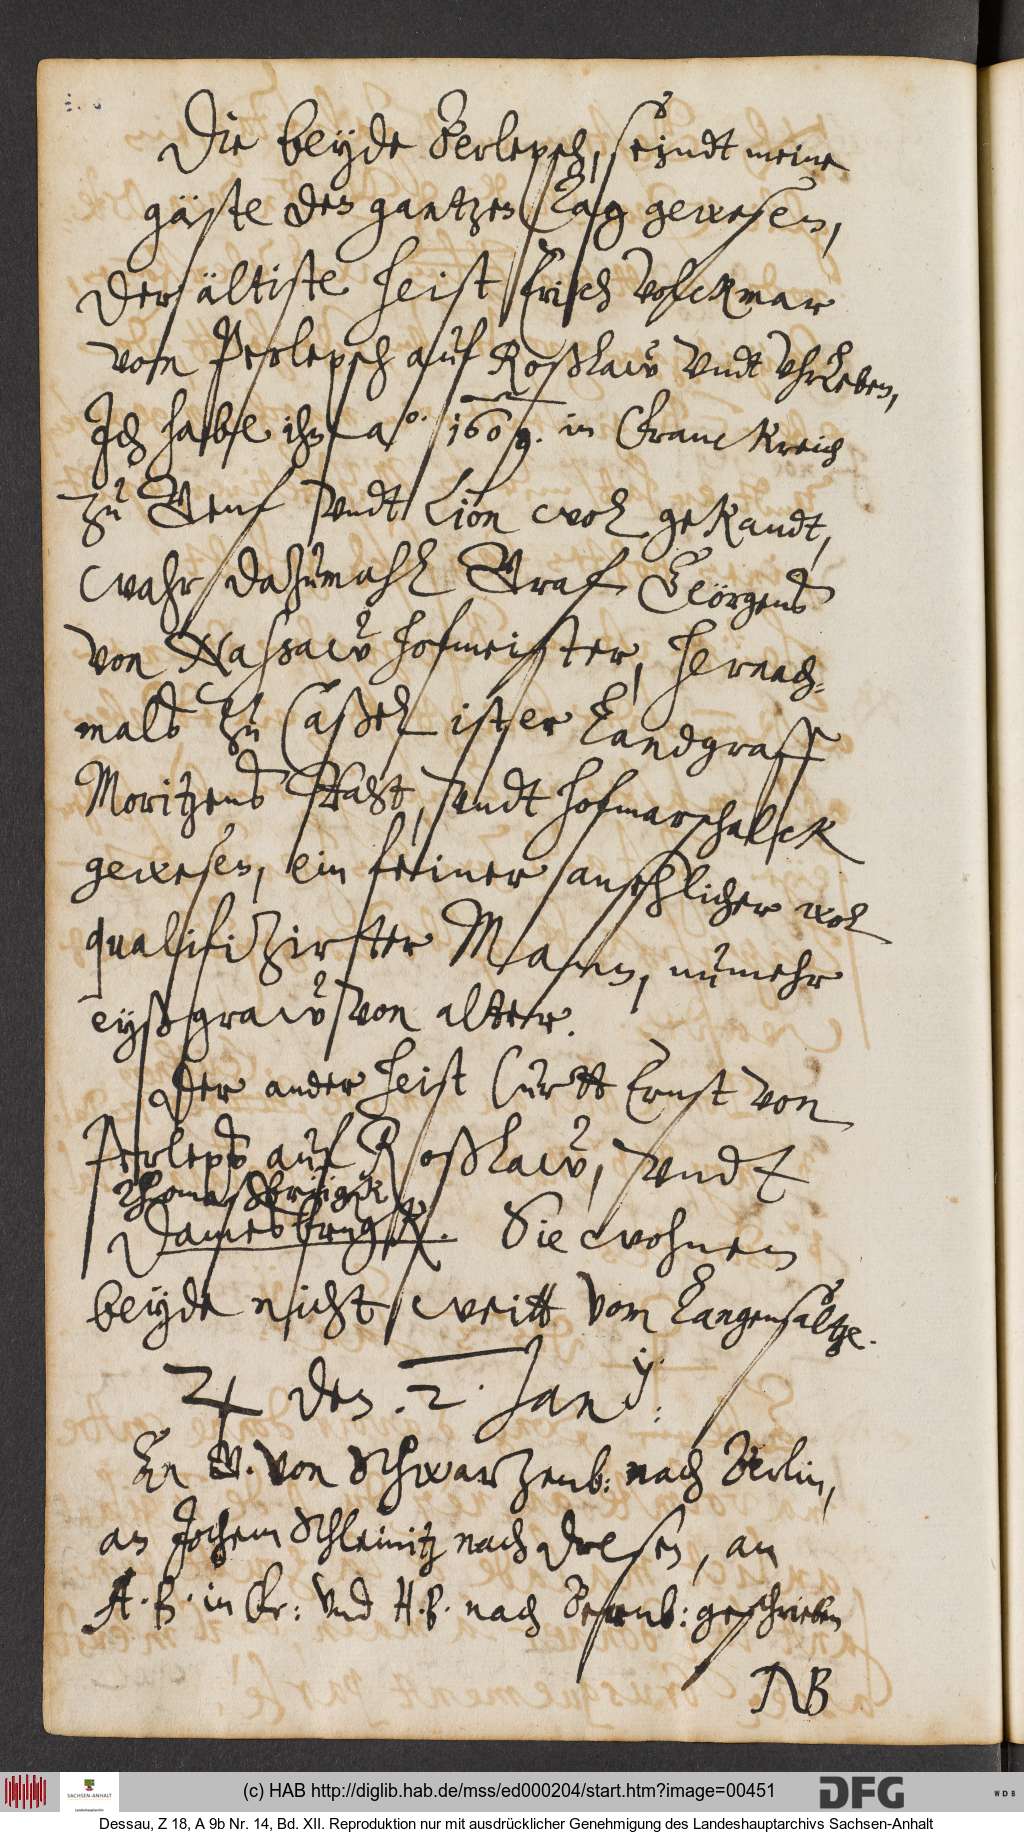 Die beyde Berlepsch, seindt meine
gäste den gantzen Tag gewesen,
der ältiste heist Erich Volckmar
vom Berlepsch auf Roßlaw vndt Vhrleben,
Ich habe ihn ao. 1609. in Franckreich
zu Genf vndt Lion wol gekandt,
wahr dazumahl Graf Geörgens
von Nassaw hofmeister, hernach-
mals zu Caßel ist er Landgraff
Moritzens Raht, vndt hofmarschalck
gewesen, ein feiner ansehlicher wol
qualifizirter Mann, numehr
eyßgraw von alter.
Der ander heist Curtt Ernst von
Perleps auf Roßlaw, vndt
Thomaßbrügk
Damesbrugk. Sie wohnen
beyde nicht weitt vom Langensaltze.
♃ den .2. Jan:
An G. von Schwarzenb: nach Berlin,
an Jochem Schleinitz nach Dresen, an
A. B. in Fr: vnd H. B. nach Bernb: geschrieben
NB
(c) HAB http://diglib.hab.de/mss/ed000204/start.htm?image=00451
SACHSEN-ANHALT
DFG
WDB
Dessau, Z 18, A 9b Nr. 14, Bd. XII. Reproduktion nur mit ausdrücklicher Genehmigung des Landeshauptarchivs Sachsen-Anhalt